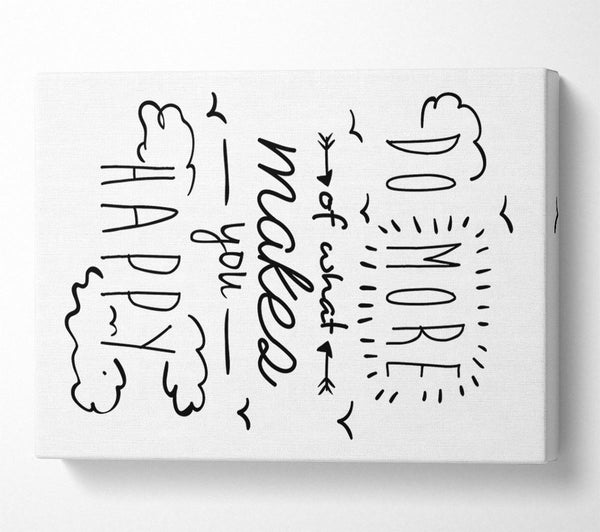 DO
MORE
of what
makes
you
HAPPY